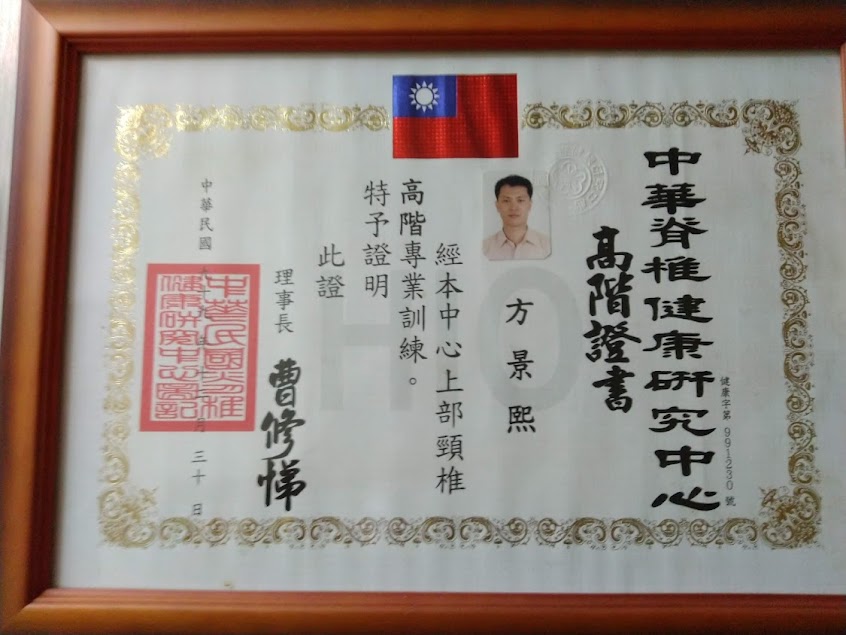 健康字第991230號
中華脊椎健康研究中心
高階證書
方景熙
經本中心上部頸椎
高階專業訓練。
特予證明
此證
理事長 曹修悌
中華民國九十九年十二月三十日
中華民國脊椎
健康研究中心圖記